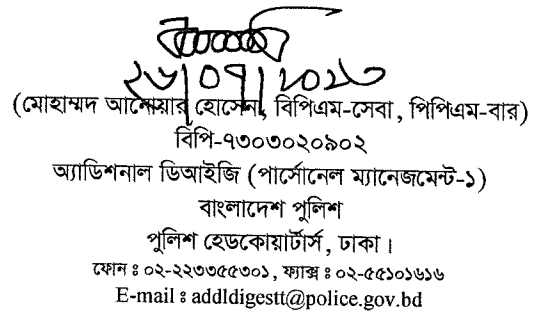 ২৬/০৭/২০২৩
(মোহাম্মদ আনোয়ার হোসেন, বিপিএম-সেবা, পিপিএম-বার)
বিপি-৭৩০৩০২০৯০২
অ্যাডিশনাল ডিআইজি (পার্সোনেল ম্যানেজমেন্ট-১)
বাংলাদেশ পুলিশ
পুলিশ হেডকোয়ার্টার্স, ঢাকা।
ফোন ঃ ০২-২২৩৩৫৫৩০১, ফ্যাক্স ঃ ০২-৫৫১০১৬১৬
E-mail ঃ addldigestt@police.gov.bd